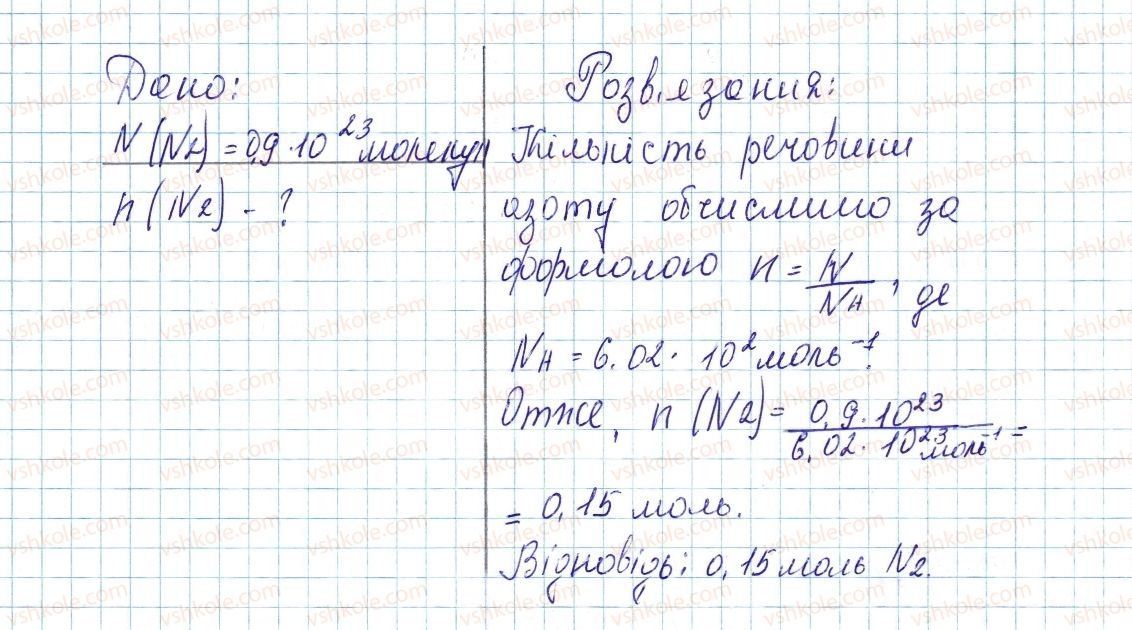 Дано:
N(N2) = 0,9·10²³ молекул
n(N2) - ?
Розв'язання:
Кількість речовини
азоту обчислимо за
формолою n = N/NA, де
NA = 6.02·10² моль⁻¹.
Отже, n(N2) = 0,9·10²³ / 6,02·10²³ моль⁻¹ =
= 0,15 моль.
Відповідь: 0,15 моль N2.
vshkole.com